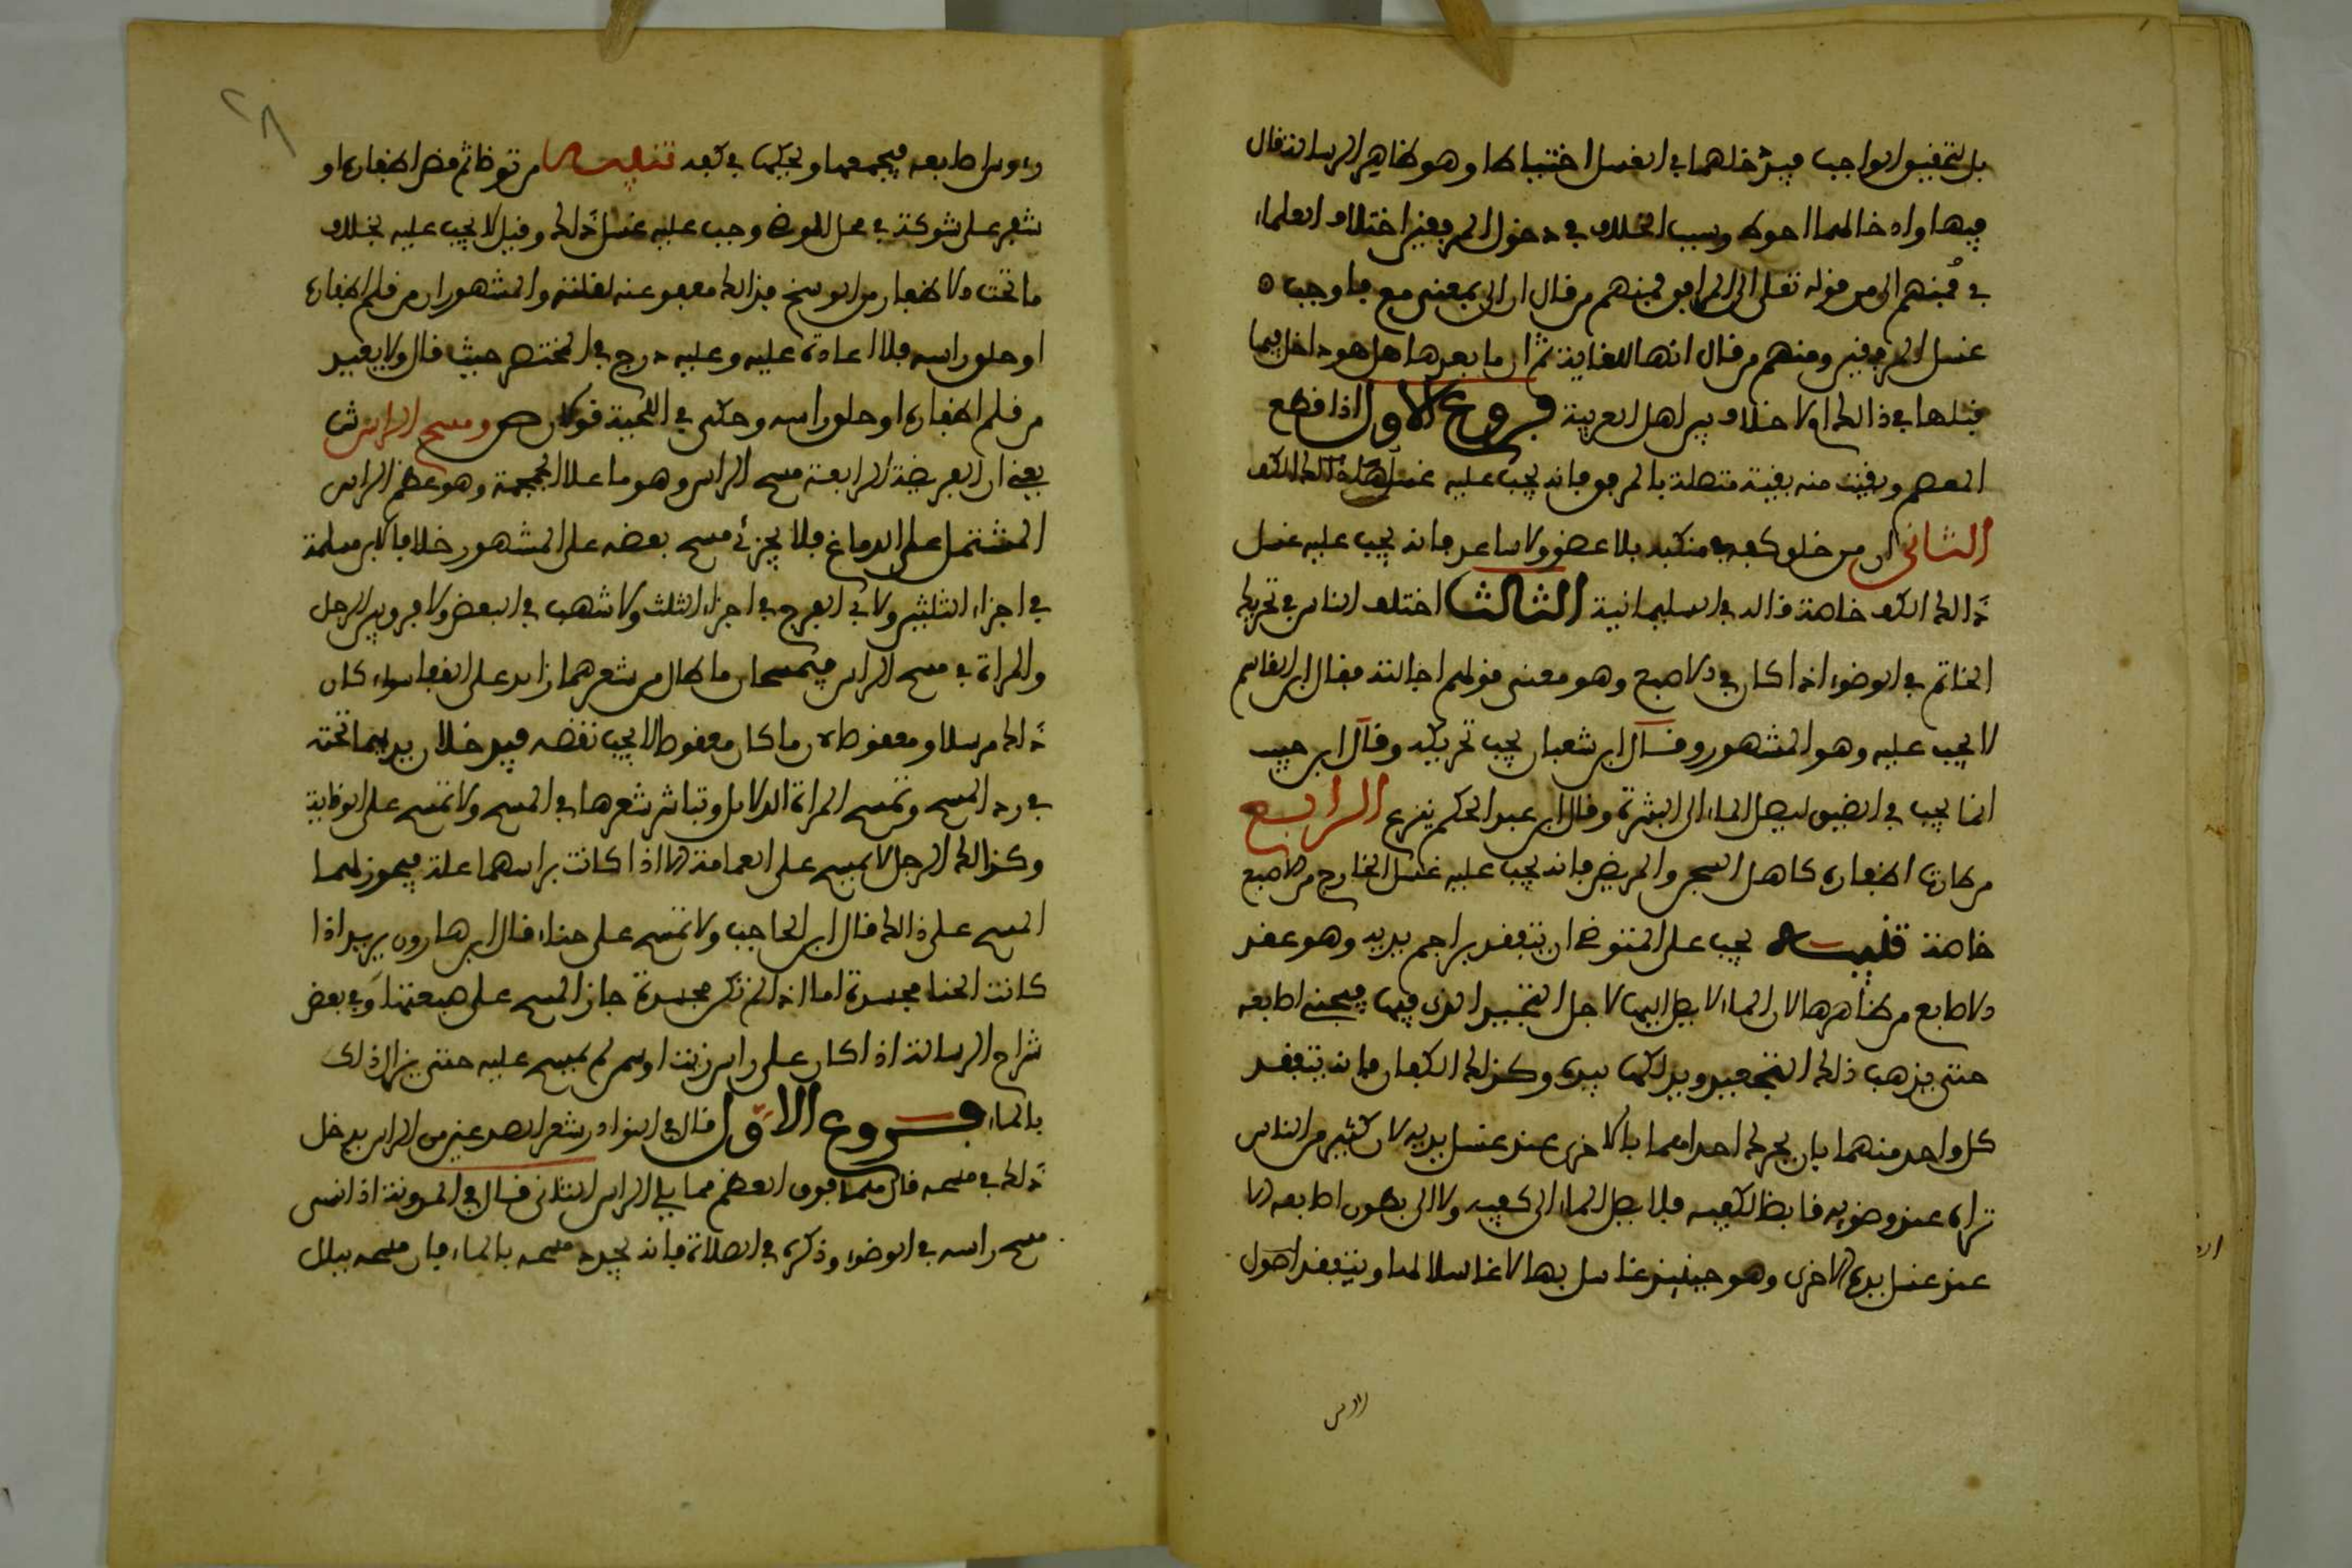 بل لتحقيق الواجب فيدخلهما في الغسل احتياطا وهو ظاهر الرسالة قال
فيها وادخالهما احوط وسبب الخلاف في دخول المرفقين اختلاف العلماء
في فمنهم الى من قوله تعلى الى المرافق فمنهم من قال ان الى بمعنى مع فاوجب
غسل المرفقين ومنهم من قال انها للغاية ثم ان ما بعدها هل هو داخل فيما
قبلها في ذالك او لا خلاف بين اهل العربية فروع الاول اذا قطع
المعصم وبقيت منه بقية متصلة بالمرفق فانه يجب عليه غسل ذالك
الثاني ان من خلق كفه بمنكبه بلا عضد ولا ساعد فانه يجب عليه غسل
ذالك الكف خاصة قاله في السليمانية الثالث اختلف الناس في تحريك
الخاتم في الوضوء اذا كان في الاصبع وهو معنى قولهم اجالته فقال ابن القاسم
لا يجب عليه وهو المشهور وقال ابن شعبان يجب تحريكه وقال ابن حبيب
انما يجب في الضيق ليصل الماء الى البشرة وقال ابن عبد الحكم ينزع الرابع
من طالت اظفاره كاهل السجن والمريض فانه يجب عليه غسل الخارج من الاصبع
خاصة تنبيه يجب على المتوضئ ان يتفقد براجم يديه وهو عقد
الاصابع من ظاهرها لان الماء لا يصل اليها لاجل التجبير الذي فيها فيحني اصابعه
حتى يذهب ذلك التجعير ويدلكها بيده وكذلك الكفان فانه يتفقد
كل واحد منهما بان يحرك احداهما بالاخرى عند غسل يديه لان كثير من الناس
تراه عند وضوءه قابضا لكفيه فلا يصل الماء الى كفيه ولا الى بطون اصابعه الا
عند غسل يده الاخرى وهو حينئذ غاسل بها لا غاسلا لها ويتفقد اصول
ورءوس اصابعه فيجمعها ويحكها في كفه تنبيه من توضا ثم قص اظفاره او
شعر على شوكة في محل الفرض وجب عليه غسل ذلك وقيل لا يجب عليه بخلاف
ما تحت الاظفار من الوسخ فذالك معفو عنه لقلته والمشهور ان من قلم اظفاره
او حلق راسه فلا اعادة عليه وعليه درج في المختصر حيث قال ولا يعيد
من قلم اظفاره او حلق راسه وحكى في اللحية قولان ص ومسح الراس ش
يعني ان الفريضة الرابعة مسح الراس وهو ما علا الجمجمة وهو عظم الراس
المشتمل على الدماغ فلا يجزئ مسح بعضه على المشهور خلافا لابن مسلمة
في اجزاء الثلثين ولابي الفرج في اجزاء الثلث ولاشهب في البعض ولا فرق بين الرجل
والمراة في مسح الراس فيمسحان ما طال من شعرهما زايد على القفا سواء كان
ذلك مرسلا او معقوصا لان ما كان معقوصا لا يجب نقضه فيدخلان يديهما تحته
في رد المسح وتمسح المراة الدلايل وتباشر شعرها في المسح ولا تمسح على الوقاية
وكذالك الرجل لا يمسح على العمامة الا اذا كانت براسهما علة فيجوز لهما
المسح على ذالك قال ابن الحاجب ولا تمسح على حناء قال ابن هارون يريد اذا
كانت الحنا مجسدة اما اذا لم تكن مجسدة جاز المسح على صبغتها وفي بعض
شراح الرسالة اذا كان على راس زيت او سمن لم يمسح عليه حتى يزال ذلك
بالماء فروع الاول قال في النوادر شعر الصدغين من الراس يدخل
ذلك في مسحه قال مما فوق العظم مما يلي الراس الثاني قال في المدونة اذا نسي
مسح راسه في الوضوء وذكره في الصلاة فانه يجدد مسحه بالماء فان مسحه ببلل